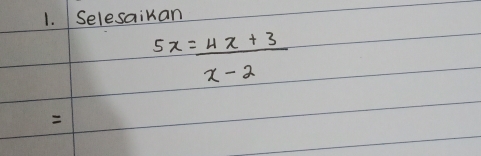 1. Selesaikan
5x = 4x + 3
x - 2
=